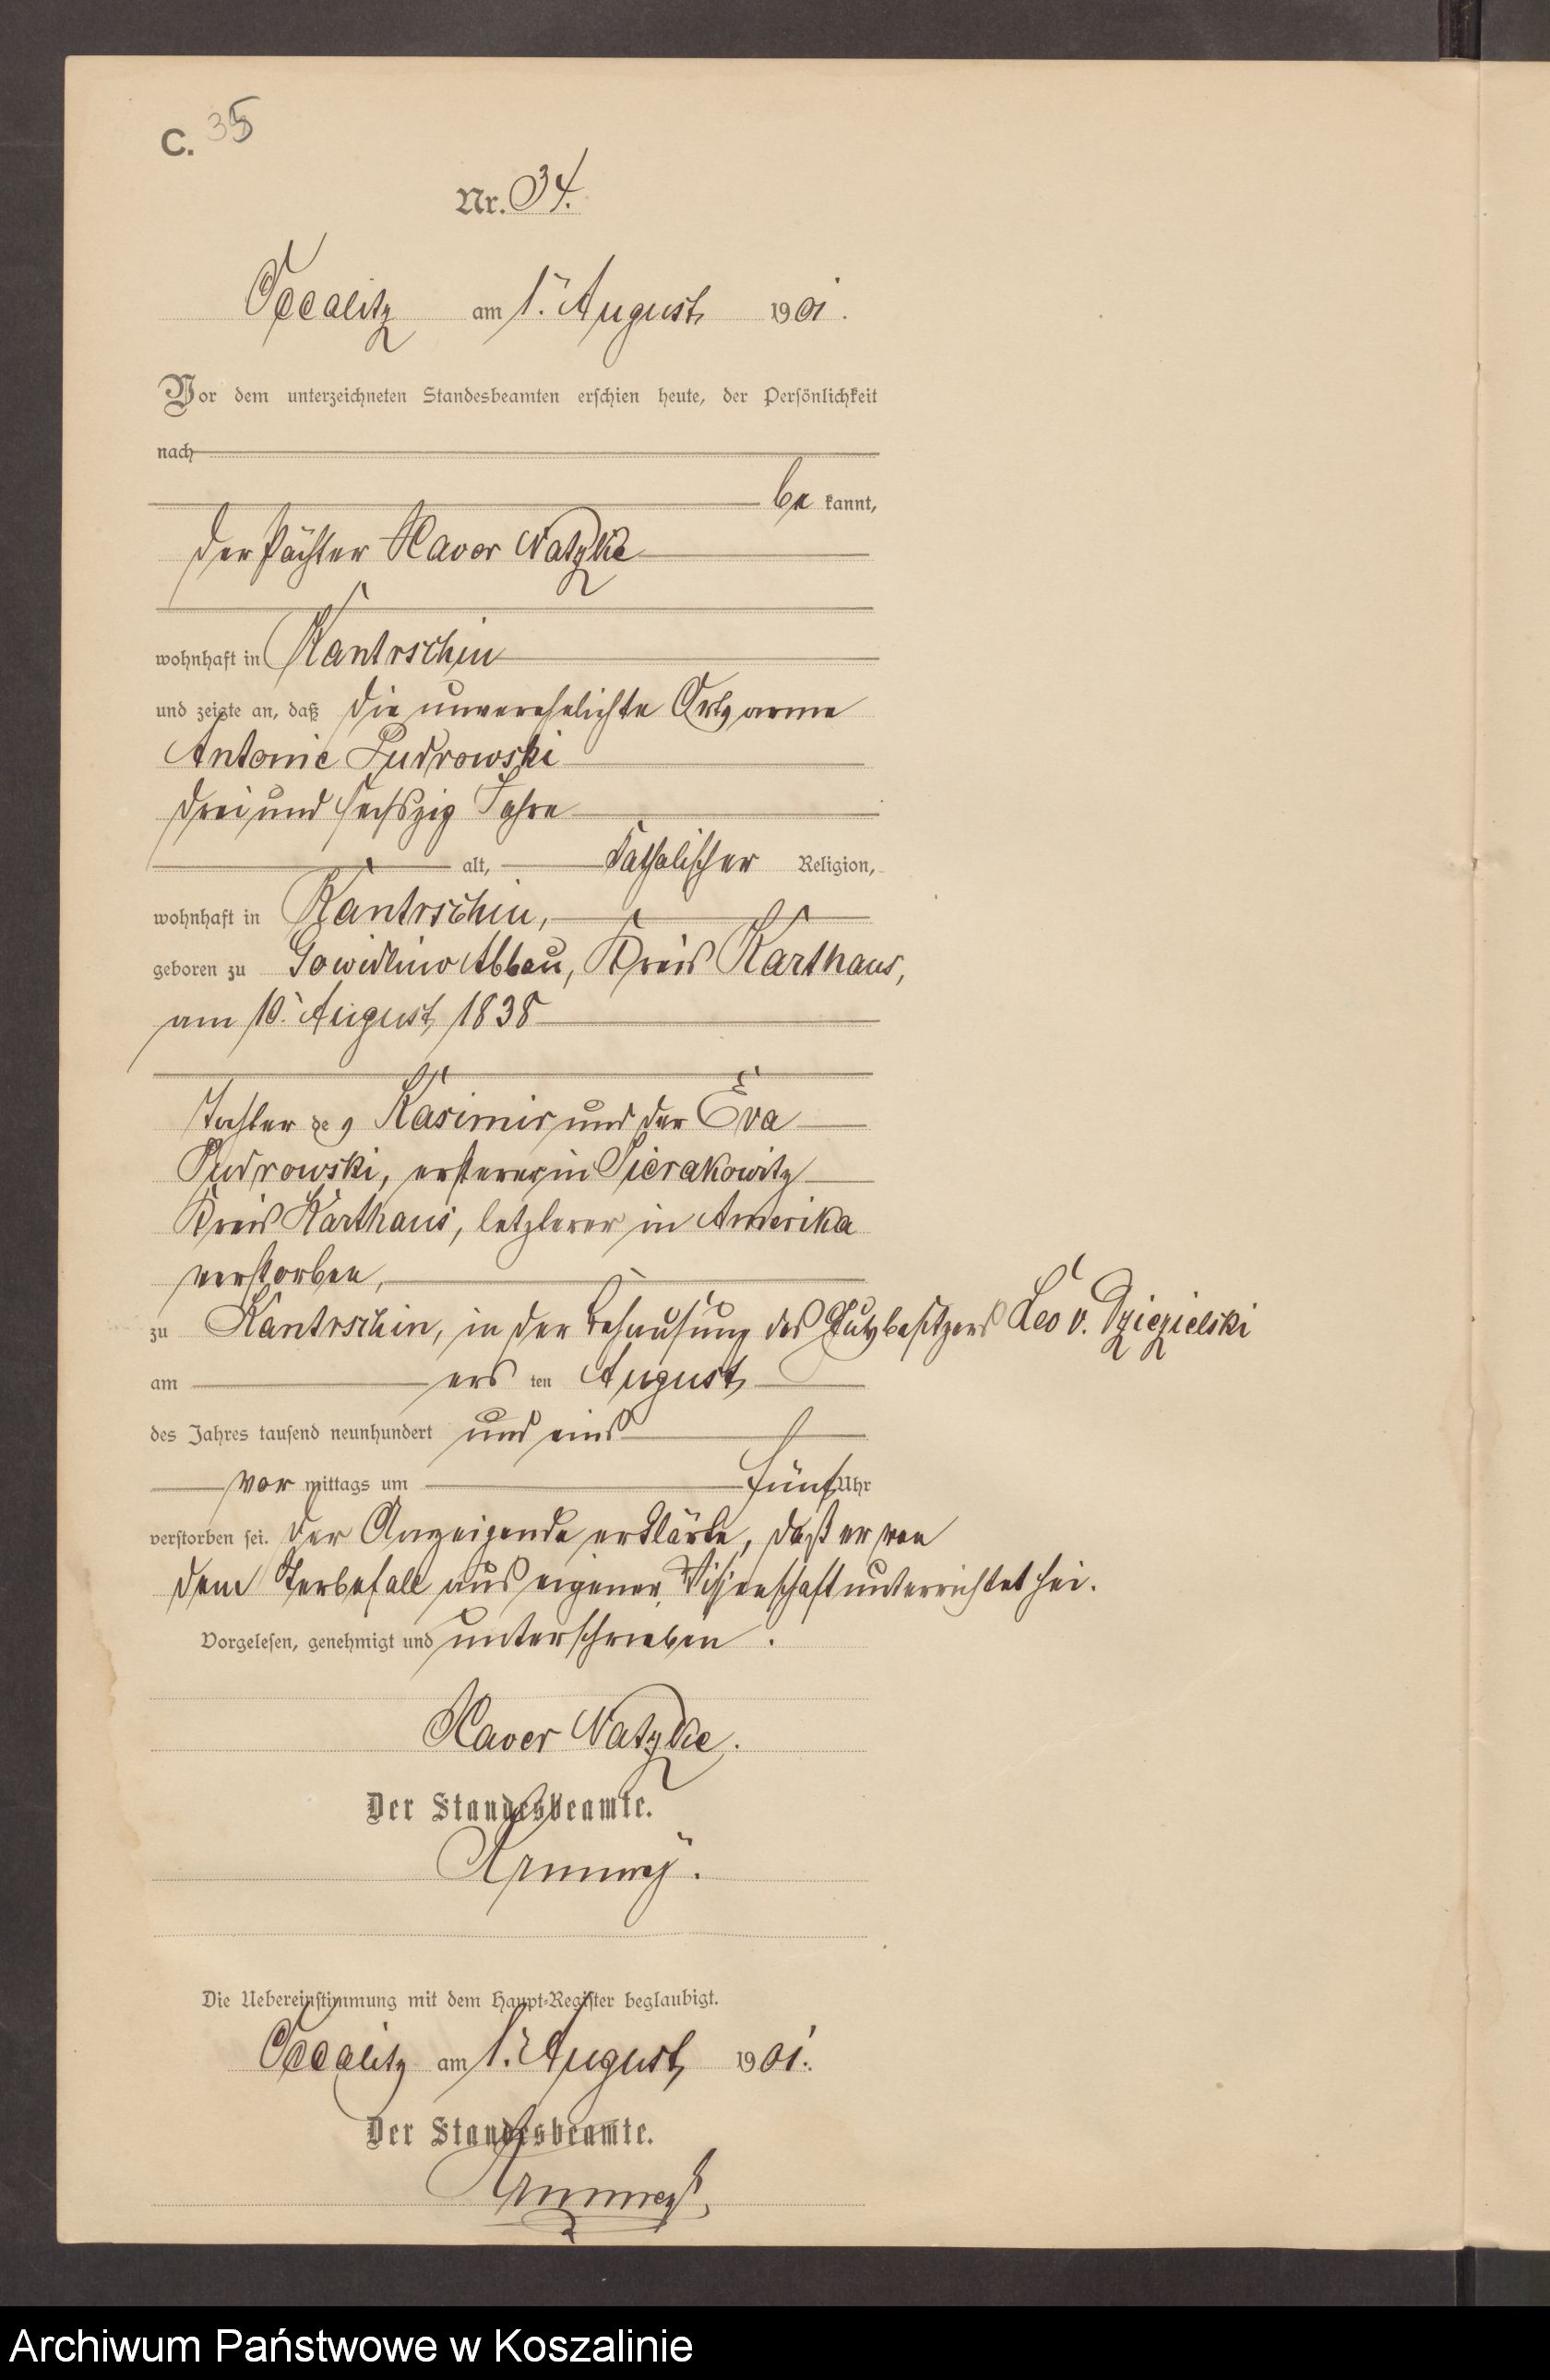 C. 35
Nr. 34.
Occalitz am 1. August 1901.
Vor dem unterzeichneten Standesbeamten erschien heute, der Persönlichkeit
nach
be kannt,
der Pächter Xaver Natzke
wohnhaft in Kantrschin
und zeigte an, daß die unverehelichte Ortsarme
Antonie Pudrowski
drei und sechszig Jahre
alt, katholischer Religion,
wohnhaft in Kantrschin,
geboren zu Gowidlino Abbau, Kreis Karthaus,
am 10. August 1838
Tochter des Kasimir und der Eva
Pudrowski, ersterer in Sierakowitz
Kreis Karthaus, letzterer in Amerika
verstorben,
zu Kantrschin, in der Behausung des Gutsbesitzers Leo v. Dziezielski
am ers ten August
des Jahres tausend neunhundert und eins
vor mittags um fünf Uhr
verstorben sei. Der Anzeigende erklärte, daß er von
dem Sterbefall aus eigener Wissenschaft unterrichtet sei.
Vorgelesen, genehmigt und unterschrieben.
Xaver Natzke.
Der Standesbeamte.
Die Uebereinstimmung mit dem Haupt-Register beglaubigt.
Occalitz am 1. August 1901.
Der Standesbeamte.
Archiwum Państwowe w Koszalinie